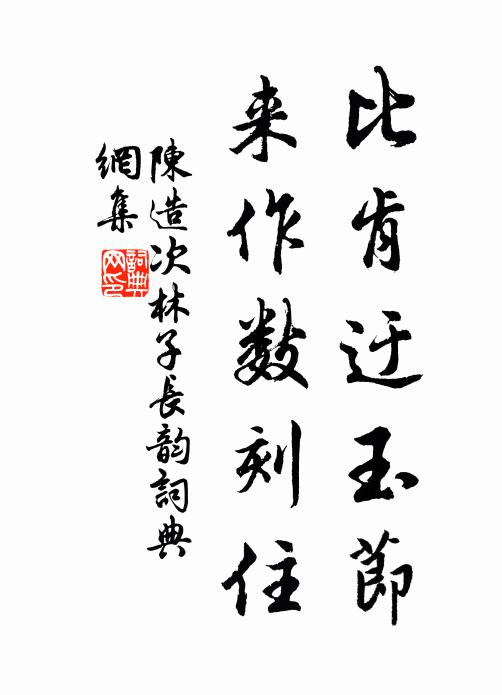 比肯迂玉節
来作数刻住
陳造次林子長韵詞典
網集
詞典
网印